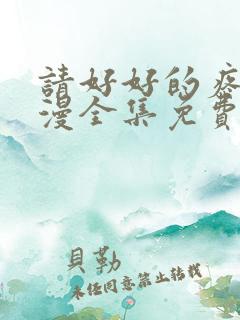 請好好的疼
漫全集免費
貝勒
未经同意禁止转载